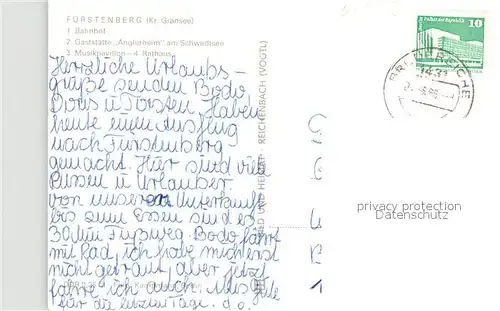 FÜRSTENBERG (Kr. Gransee)
1 Bahnhof
2 Gaststätte „Anglerheim" am Schwedtsee
3 Musikpavillon – 4 Rathaus
Herzliche Urlaubs-
grüße senden Bodo
Doris u Torsten. Haben
heute einen Ausflug
nach Fürstenberg
gemacht. Hier sind viele
Russen u Urlauber.
von unserer Unterkunft
bis zum Essen sind es
30 Min Fußweg. Bodo fährt
mit Rad, ich habe mich erst
nicht getraut, aber jetzt
fahre ich auch. Alles Gute
für die letzten Tage. d.o.
BILD UND HEIMAT REICHENBACH (VOGTL)
10
1431
privacy protection
Datenschutz